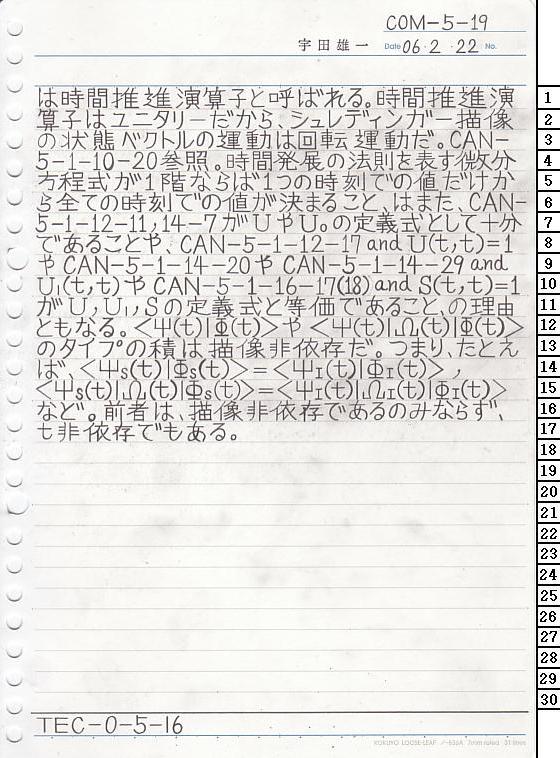 COM-5-19
宇田雄一 Date 06・2・22 No.
は時間推進演算子と呼ばれる。時間推進演 1
算子はユニタリーだから、シュレディンガー描像 2
の状態ベクトルの運動は回転運動だ。CAN- 3
5-1-10-20参照。時間発展の法則を表す微分 4
方程式が1階ならば1つの時刻での値だけか 5
ら全ての時刻での値が決まること、はまた、CAN- 6
5-1-12-11,14-7がUやU₀の定義式として十分 7
であることや、CAN-5-1-12-17 and U(t,t)=1 8
やCAN-5-1-14-20やCAN-5-1-14-29 and 9
U₁(t,t)やCAN-5-1-16-17(18) and S(t,t)=1 10
がU,U₁,Sの定義式と等価であること、の理由 11
ともなる。<Ψ(t)|Φ(t)>や<Ψ(t)|Ω(t)|Φ(t)> 12
のタイプの積は描像非依存だ。つまり、たとえ 13
ば、<Ψs(t)|Φs(t)>=<ΨI(t)|ΦI(t)>, 14
<Ψs(t)|Ωs(t)|Φs(t)>=<ΨI(t)|ΩI(t)|ΦI(t)> 15
など。前者は、描像非依存であるのみならず、 16
t非依存でもある。 17
18
19
20
21
22
23
24
25
26
27
28
29
30
TEC-0-5-16
KOKUYO LOOSE-LEAF ノ-836A 7mm ruled 31 lines